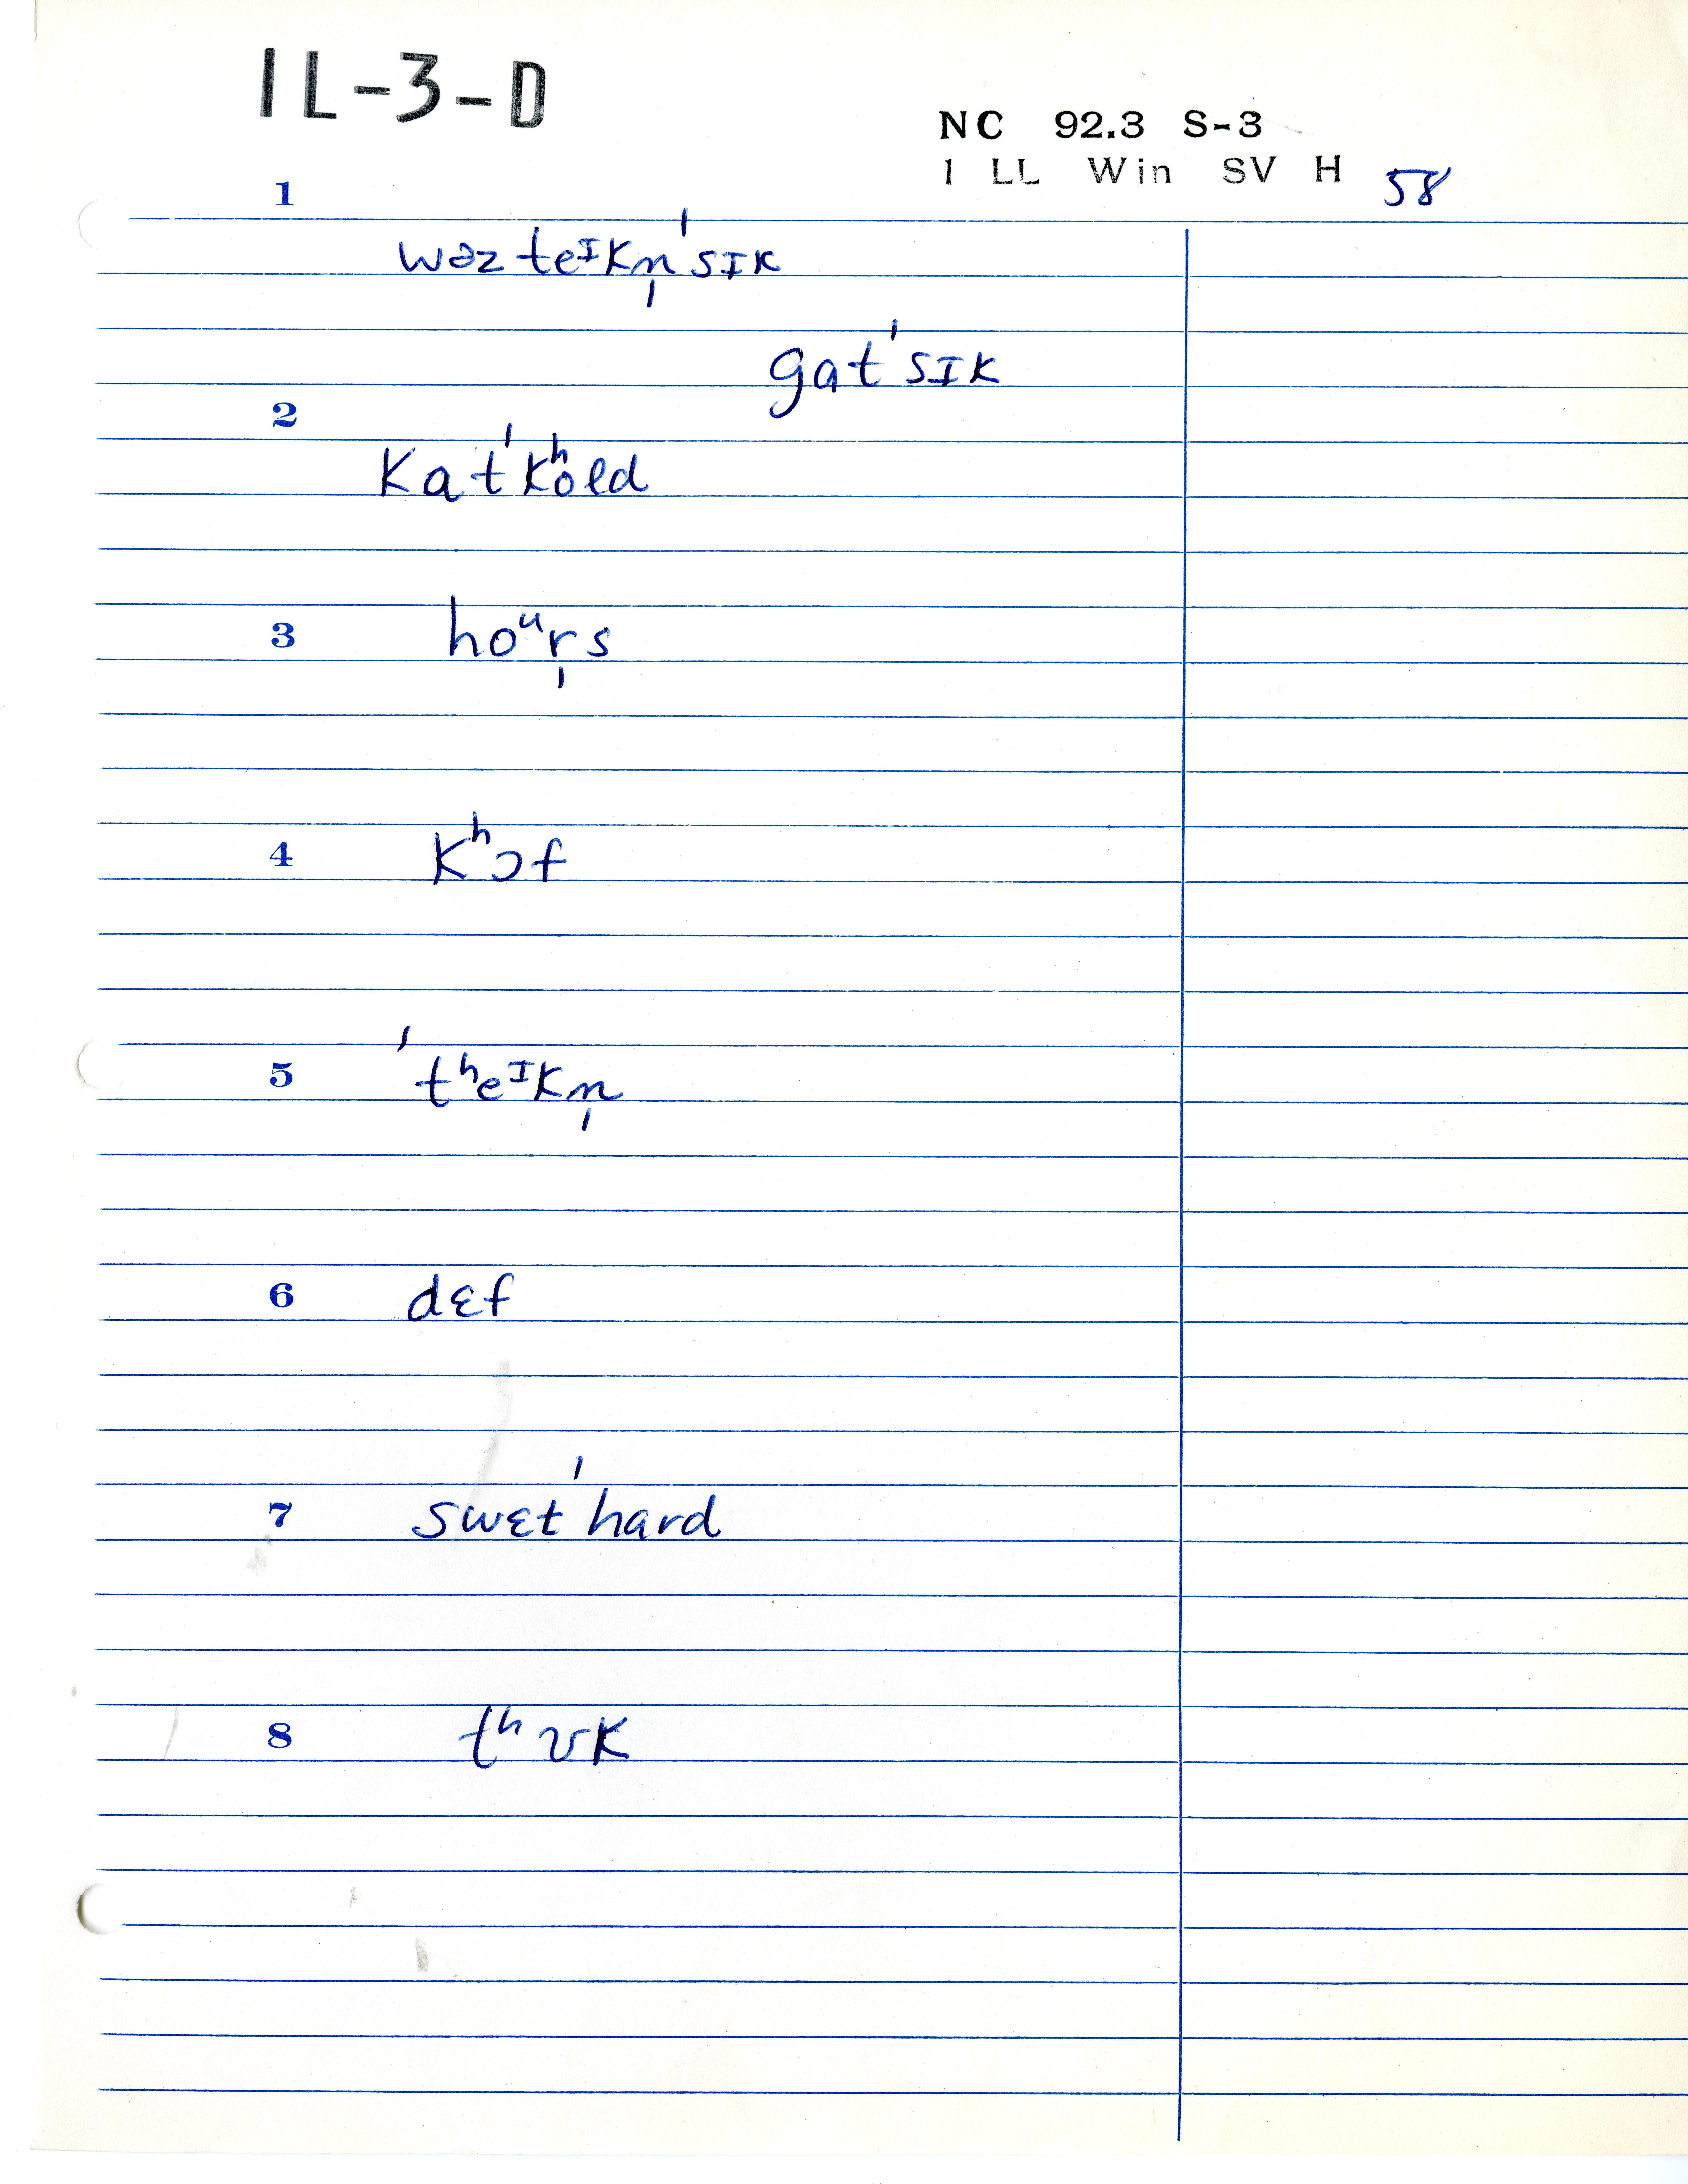 IL-3-D
NC 92.3 S-3
1 LL Win SV H 58
1
wəz teᴵkn̩ˈsɪk
gatˈsɪk
2
katˈkʰold
3
hoᵘr̩s
4
kʰɔf
5
ˈtʰeᴵkn̩
6
dɛf
7
swɛtˈhard
8
tʰʊk